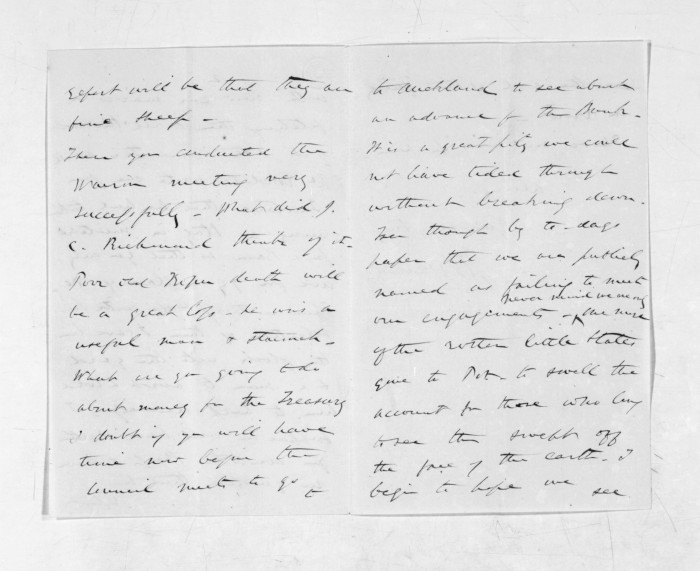 expect will be that they are
fine sheep -
I hear you conducted the
Wairoa meeting very
successfully - What did J.
C. Richmond think of it -
Poor old death will
be a great loss - he was a
useful man & staunch -
What are you going to do
about money for the Treasury
I doubt if you will have
time now before the
Council meets to go
to
to Auckland to see about
an advance fr the Bank -
It is a great pity we could
not have tided through
without breaking down.
I see though by to-days
paper that we are publicly
named as failing to meet
our engagements - never mind we are only one more
of the rotten little States
gone to Pot - to swell the
account for those who long
to see them swept off
the face of the earth - I
begin to hope we
see